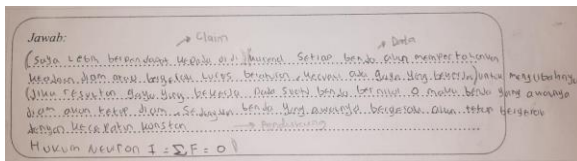 Jawab: → Claim → Data
(Saya lebih berpendapat kepada Menurut Setiap benda akan mempertahankan
keadaan diam atau bergerak lurus beraturan, kecuali ada gaya yang bekerja untuk mengubahnya
(Jika resultan gaya yang bekerja pada suatu benda bernilai 0 maka benda yang awalnya
diam akan tetap diam, Sedangkan benda yang awalnya bergerak akan tetap bergerak
dengan kecepatan konstan →
HUKUM NEWTON I = ΣF = 0)